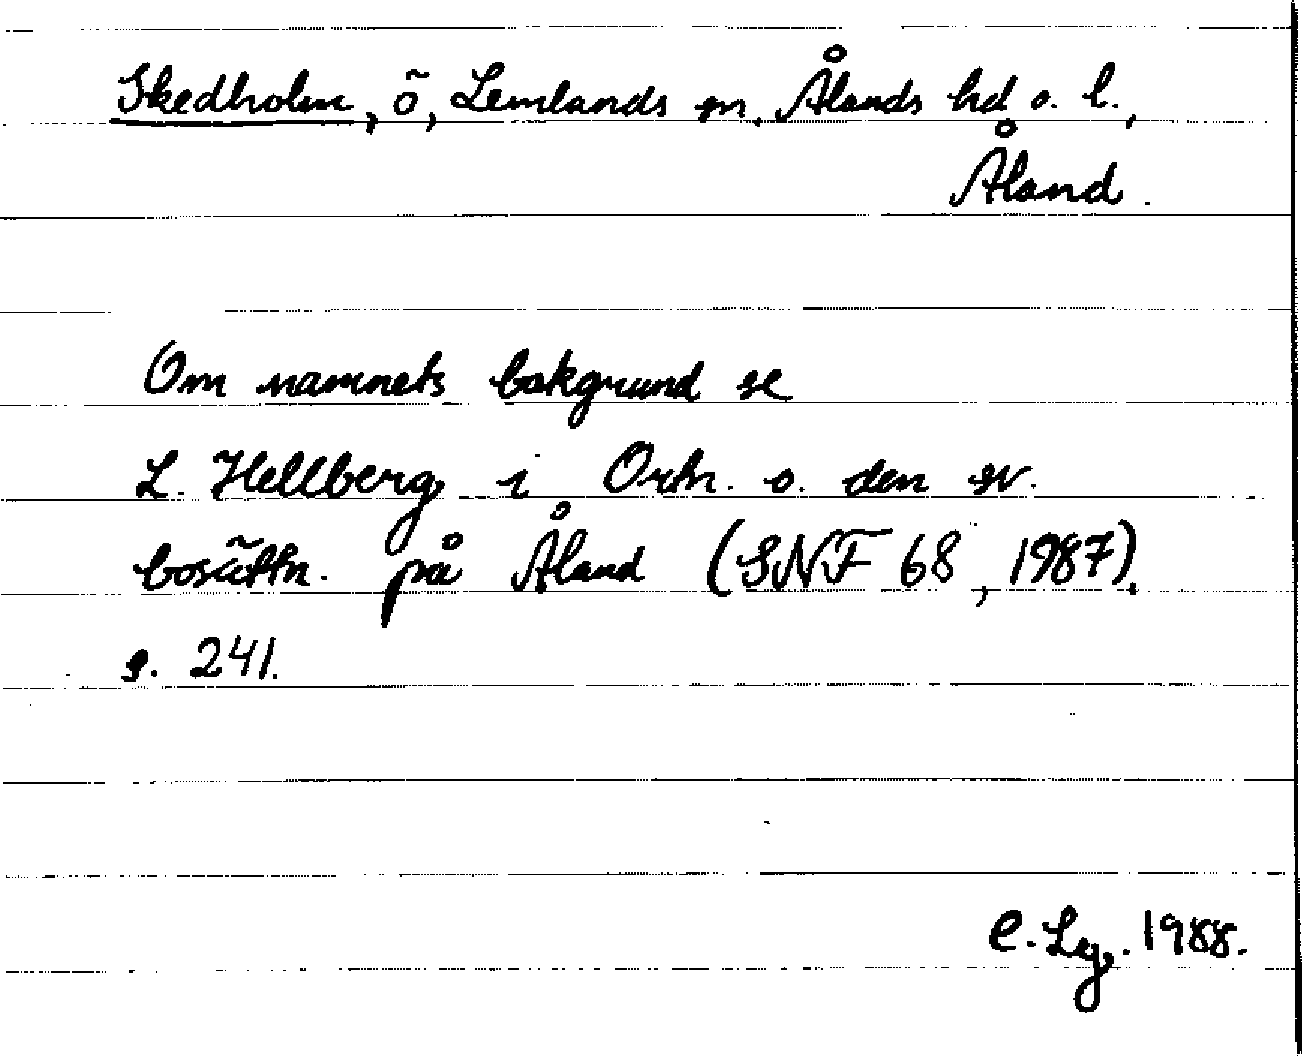 Skedholm, ö, Lemlands sn, Ålands hd o. l.,
Åland.
Om namnets bakgrund se
L. Hellberg i Ortn. o. den sv.
bosättn. på Åland (SNF 68, 1987).
s. 241.
C. Lg. 1988.